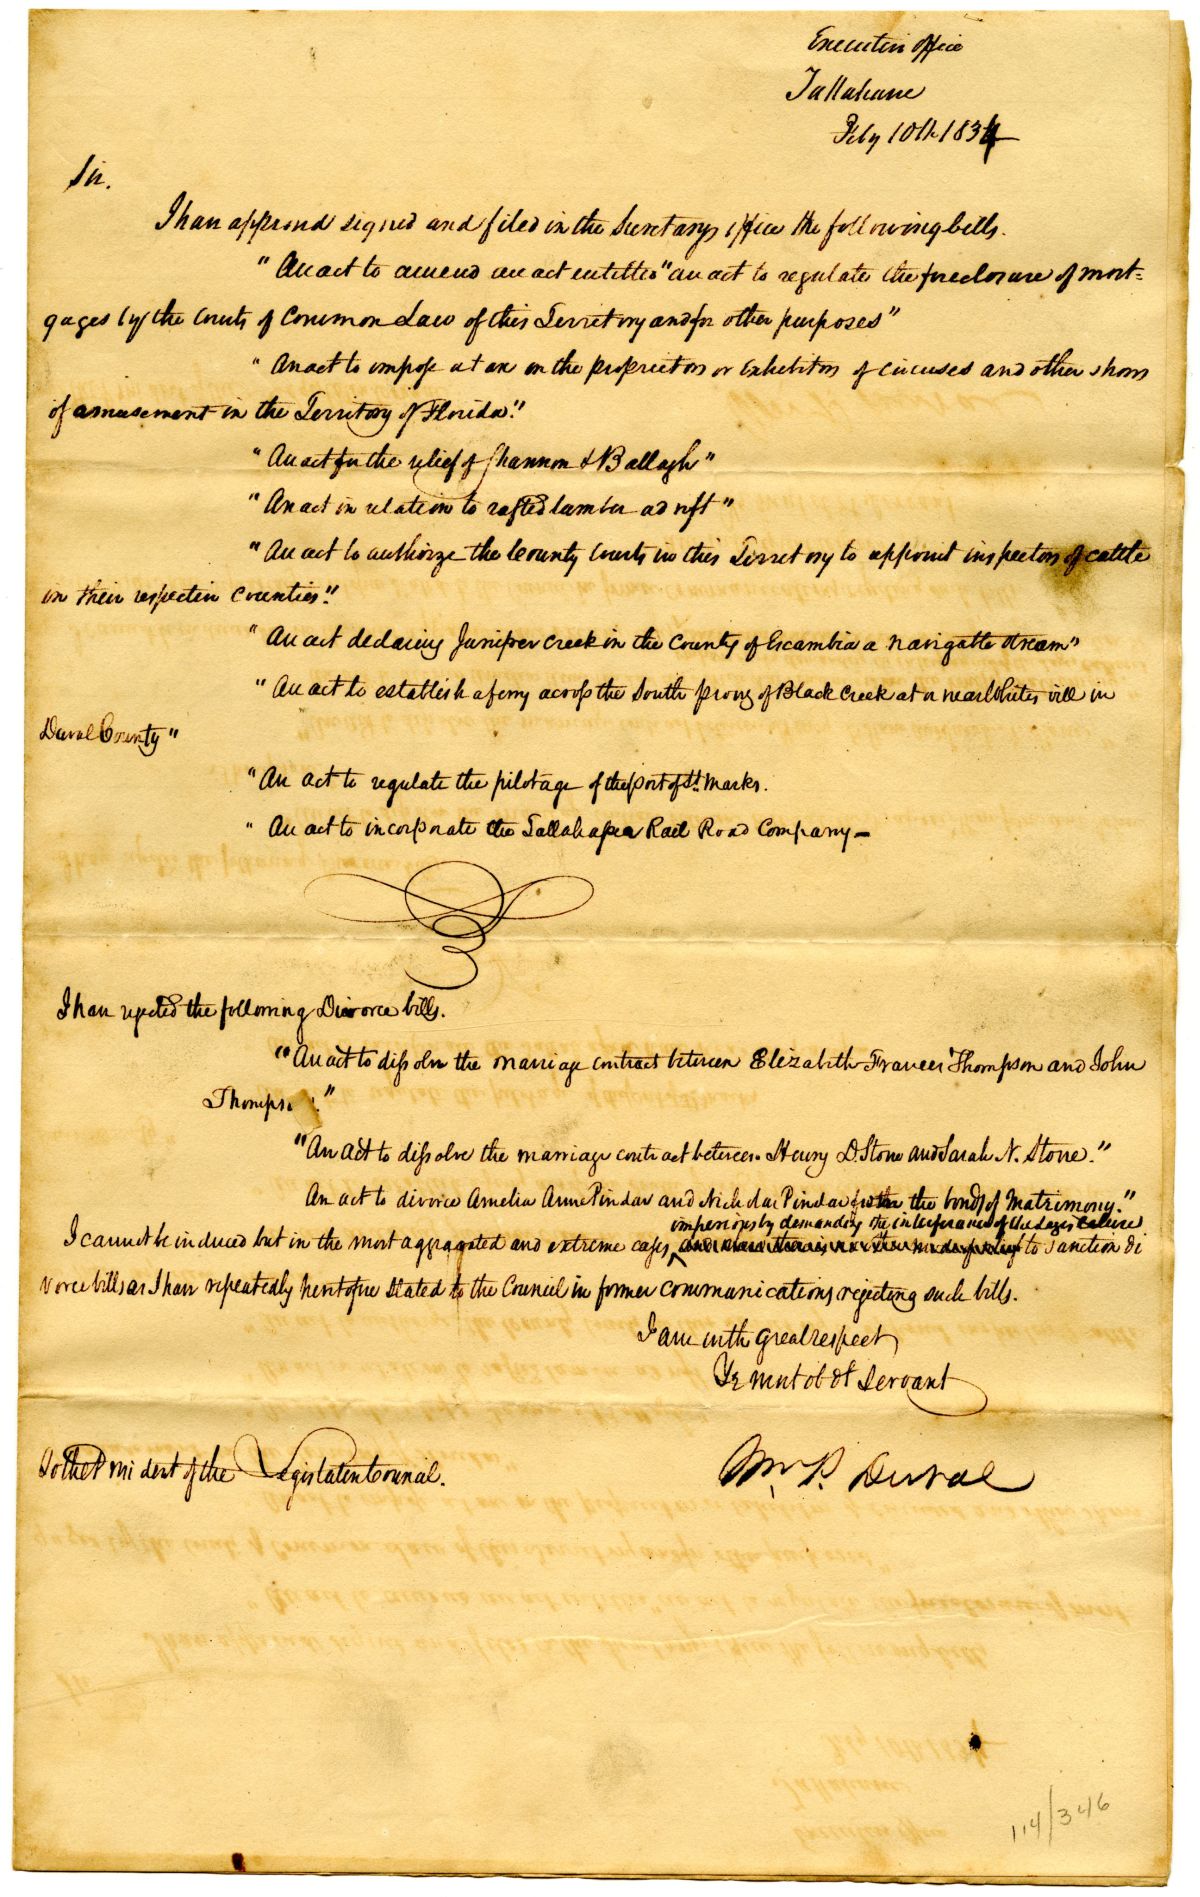 Executive Office
Tallahassee
Feby 10th 1834
Sir.
I have approved signed and filed in the Secretarys office the following bills.
"An act to amend an act entitled "an act to regulate the foreclosure of mort=
gages by the Courts of Common Law of this Territory and for other purposes"
"An act to impose a tax on the proprietors or Exhibitors of circuses and other shows
of amusement in the Territory of Florida."
"An act for the relief of Shannon & Ballagh"
"An act in relation to rafted lumber adrift"
"An act to authorize the County Courts in this Territory to appoint inspectors of cattle
in their respective counties."
"An act declaring Juniper Creek in the County of Escambia a navigable stream"
"An act to establish a ferry across the South prong of Black Creek at or near Whites ville in
Duval County"
"An act to regulate the pilotage of the port of St. Marks.
"An act to incorporate the Tallahassee Rail Road Company—
I have rejected the following Divorce bills.
"An act to dissolve the marriage contract between Elizabeth Frances Thompson and John
Thompso ."
"An act to dissolve the marriage contract between Henry D. Stone and Sarah N. Stone."
An act to divorce Amelia Anne Pindar and Nicholas Pindar from the bonds of Matrimony."
imperiously demanding the interference of the Legislature
I cannot be induced but in the most aggravated and extreme cases, to sanction di
vorce bills as I have repeatedly heretofore stated to the Council in former communications rejecting such bills.
I am with great respect
Yr most obdt Servant
Wm P. Duval
To the President of the Legislative Council.
114/346